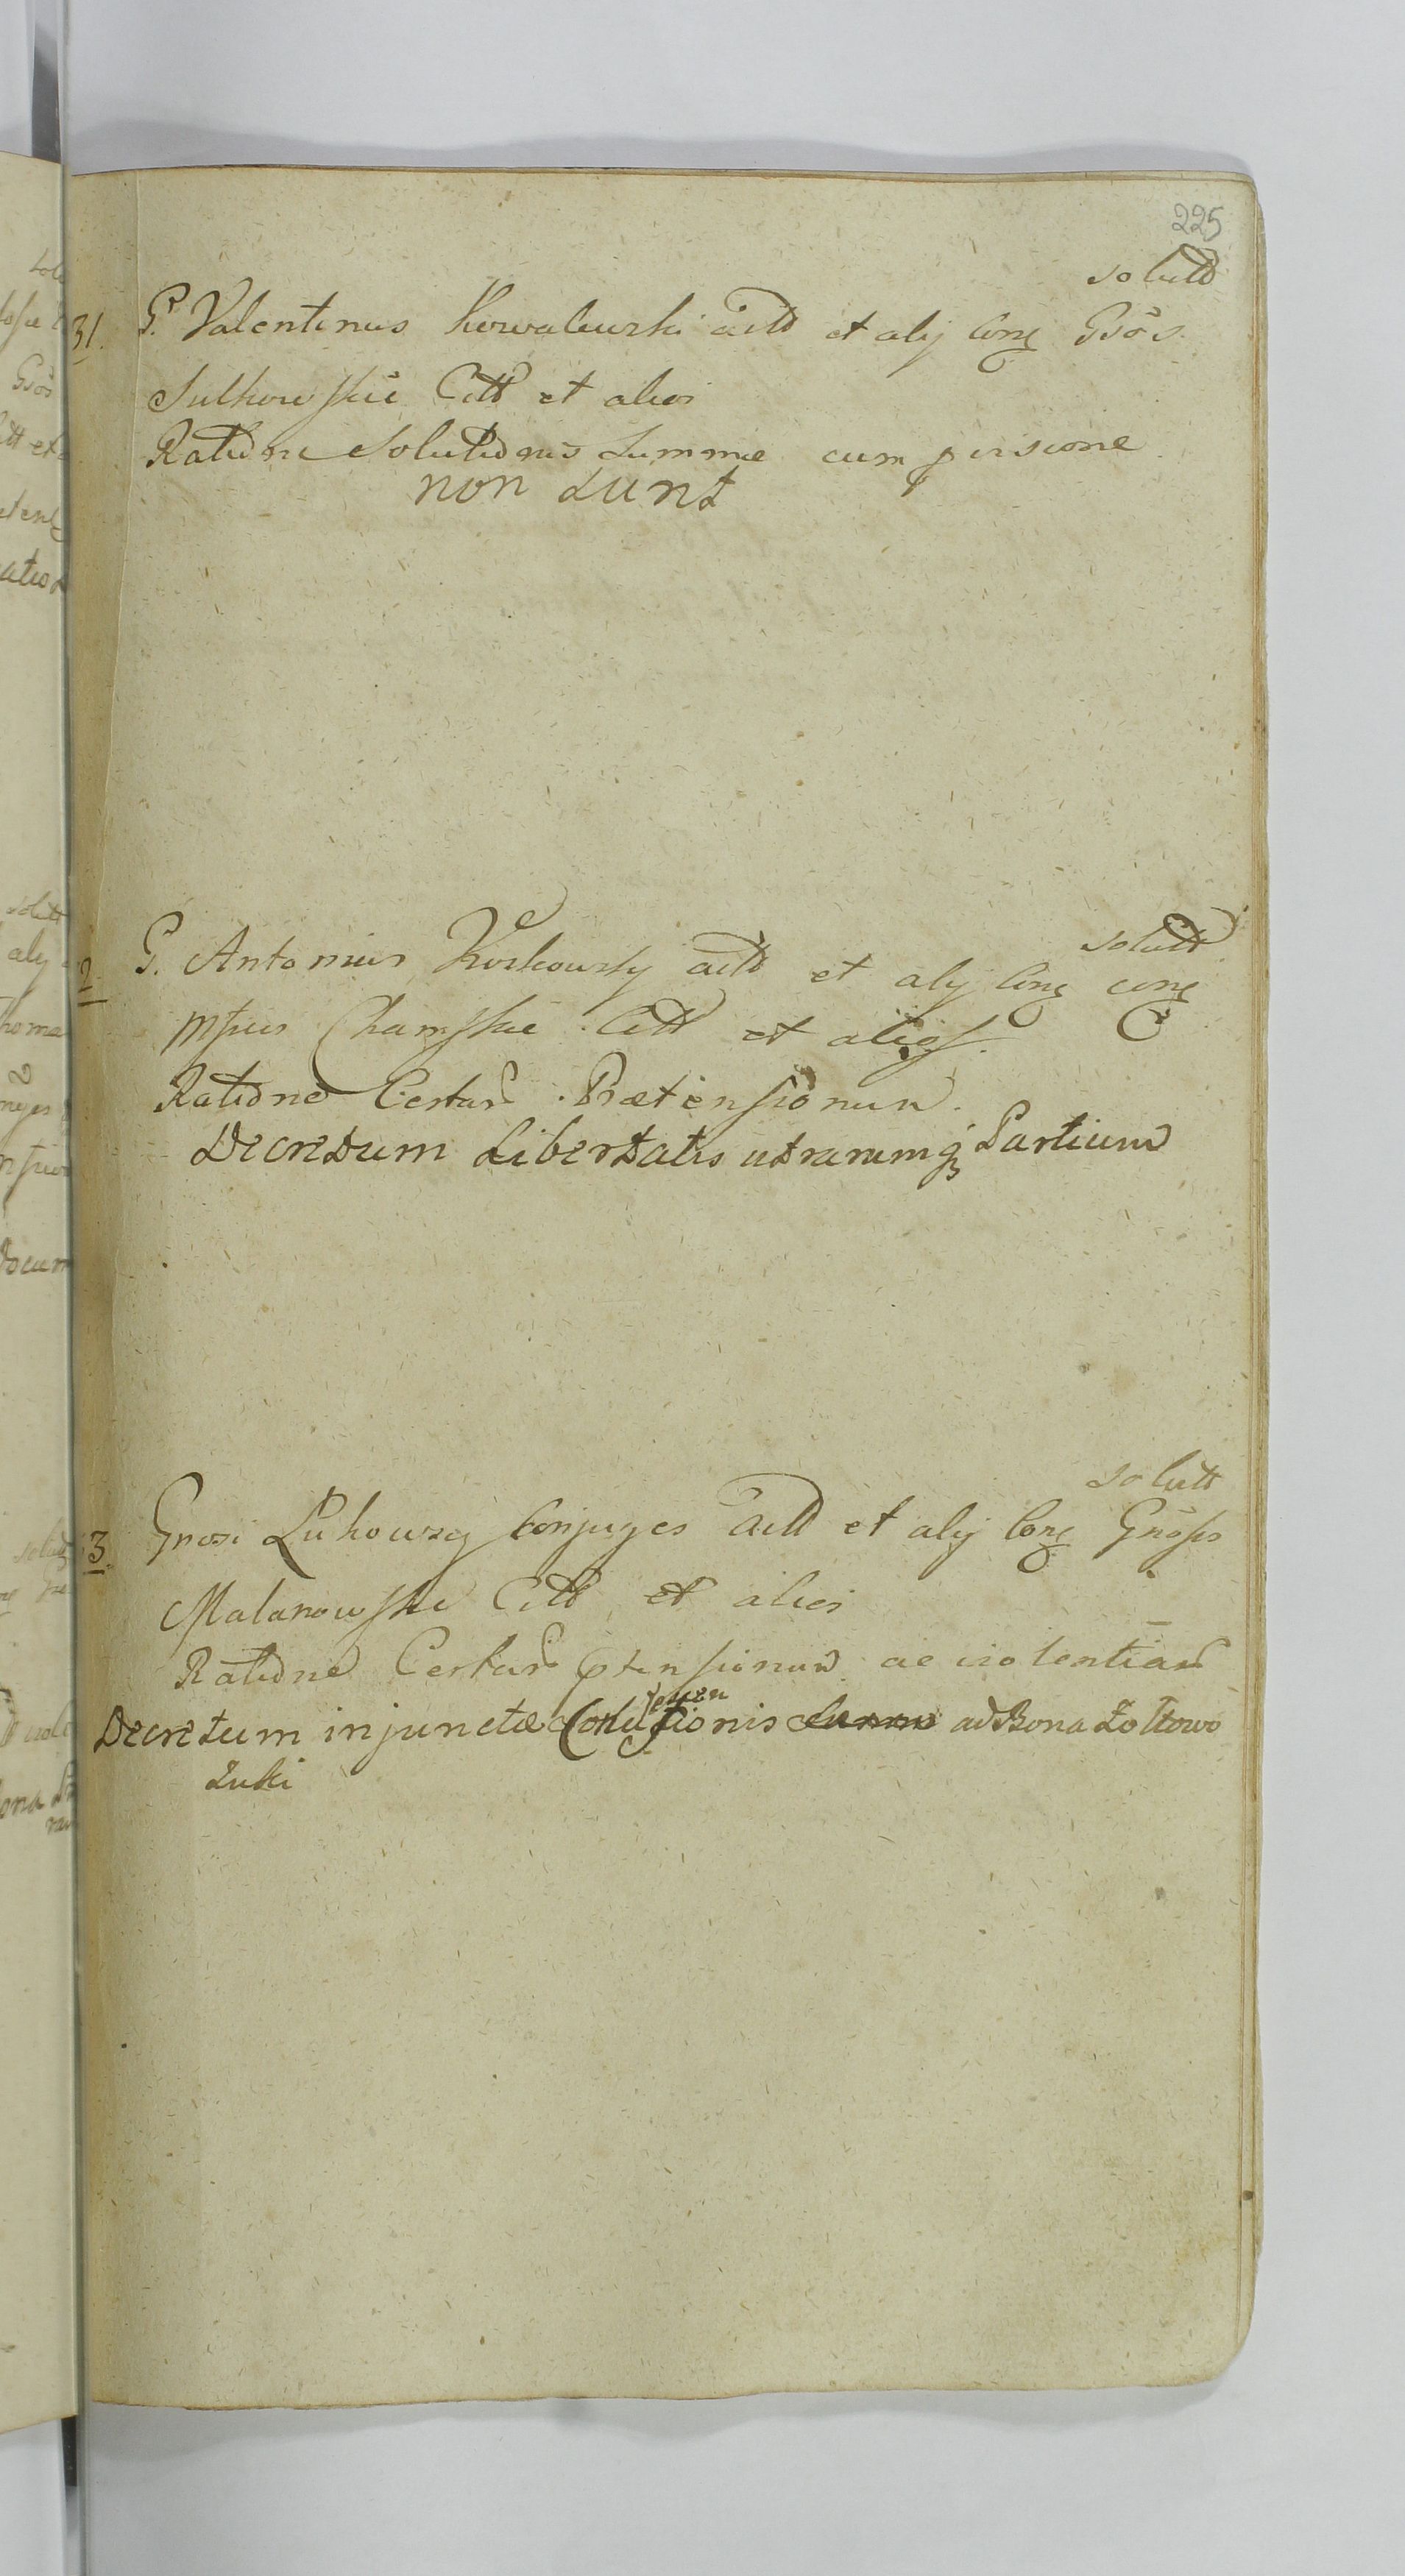 225
solutt
31. G. Valentinus Kowalewski actt et alij Conq Gsos
Sulkowskie Citt et alios
Ratione Solutionis Summae cum provisione
non sunt
solutt
2 G. Antonius Koskowsky actt et alij Conq
Mfcos Chamskie Citt et alios.
Ratione Certar Praetensionum.
Decretum Libertatis utrarumq Partium
solutt
3. Gnosi Lukowscy Conjuges actt et alij Conq Gnosos
Malanowskie Citt et alios
Ratione Certar ptensionum ac violentiar
Decretum injunctae ad Bona Zołtowo
Zuki